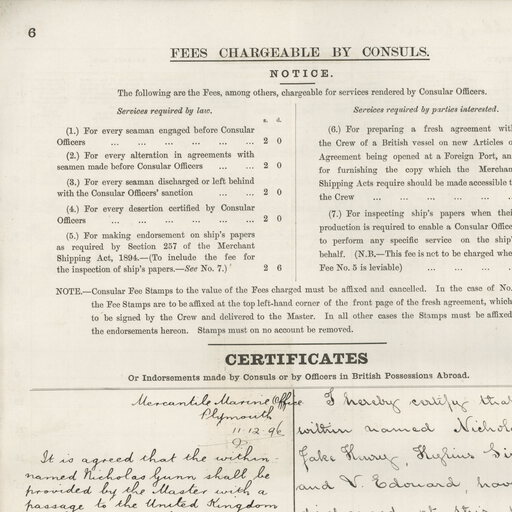 6
FEES CHARGEABLE BY CONSULS.
NOTICE.
The following are the Fees, among others, chargeable for services rendered by Consular Officers.
Services required by law.
s. d.
(1.) For every seaman engaged before Consular
Officers ... ... ... ... ... ... 2 0
(2.) For every alteration in agreements with
seamen made before Consular Officers ... ... 2 0
(3.) For every seaman discharged or left behind
with the Consular Officers' sanction ... ... 2 0
(4.) For every desertion certified by Consular
Officers ... ... ... ... ... ... 2 0
(5.) For making endorsement on ship's papers
as required by Section 257 of the Merchant
Shipping Act, 1894.—(To include the fee for
the inspection of ship's papers.—See No. 7.) 2 6
Services required by parties interested.
(6.) For preparing a fresh agreement with
the Crew of a British vessel on new Articles o
Agreement being opened at a Foreign Port, an
for furnishing the copy which the Merchan
Shipping Acts require should be made accessible t
the Crew ... ... ... ...
(7.) For inspecting ship's papers when thei
production is required to enable a Consular Office
to perform any specific service on the ship'
behalf. (N.B.—This fee is not to be charged whe
Fee No. 5 is leviable) ... ... ...
NOTE.—Consular Fee Stamps to the value of the Fees charged must be affixed and cancelled. In the case of No.
the Fee Stamps are to be affixed at the top left-hand corner of the front page of the fresh agreement, which
to be signed by the Crew and delivered to the Master. In all other cases the Stamps must be affixed
the endorsements hereon. Stamps must on no account be removed.
CERTIFICATES
Or Indorsements made by Consuls or by Officers in British Possessions Abroad.
Mercantile Marine Office
Plymouth
11.12.96
It is agreed that the within-
named Nicholas Gunn shall be
provided by the Master with a
passage to the United Kingdom
I hereby certify that
within named Nichola
and V. Edouard, hav